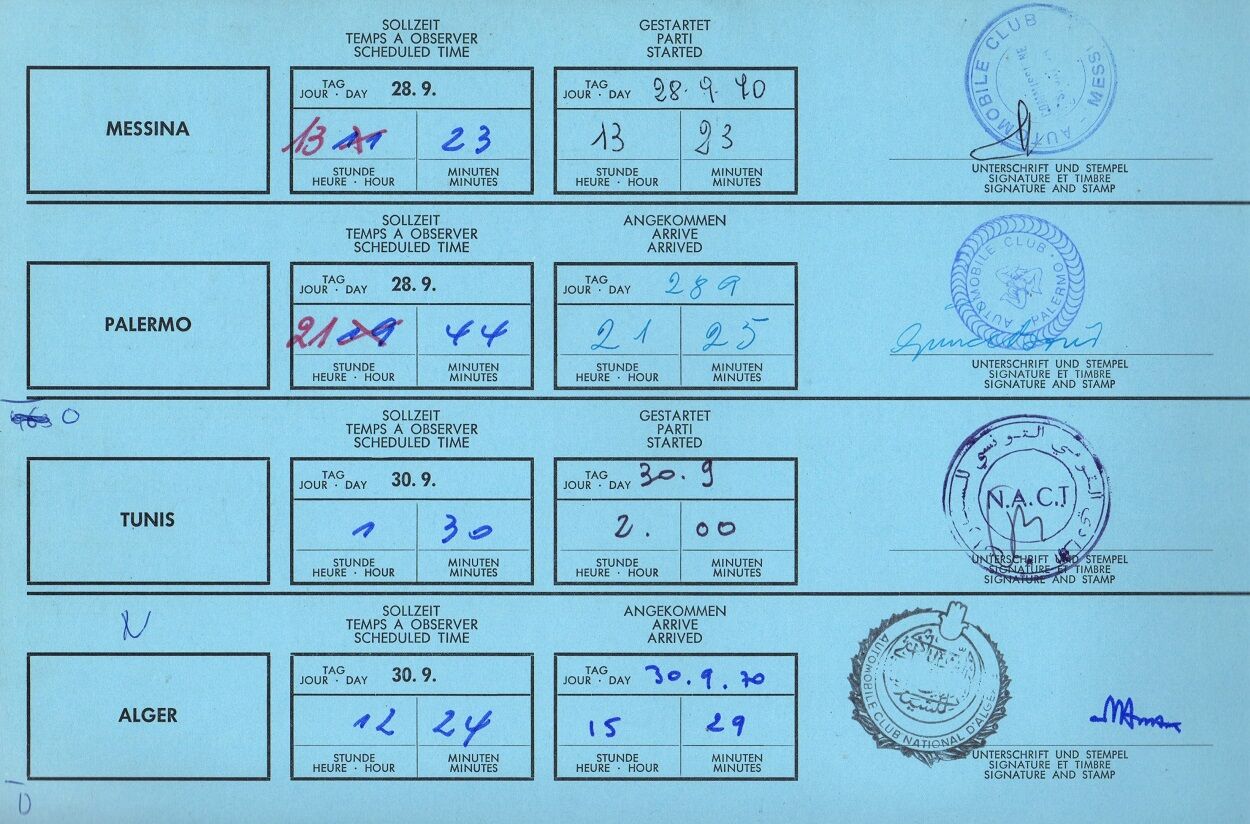 SOLLZEIT
TEMPS A OBSERVER
SCHEDULED TIME
GESTARTET
PARTI
STARTED
AUTOMOBILE CLUB - MESS
MESSINA
TAG
JOUR · DAY 28. 9.
13 11 23
STUNDE
HEURE · HOUR
MINUTEN
MINUTES
TAG
JOUR · DAY 28. 9. 70
13 23
STUNDE
HEURE · HOUR
MINUTEN
MINUTES
UNTERSCHRIFT UND STEMPEL
SIGNATURE ET TIMBRE
SIGNATURE AND STAMP
SOLLZEIT
TEMPS A OBSERVER
SCHEDULED TIME
ANGEKOMMEN
ARRIVE
ARRIVED
AUTOMOBILE CLUB · PALERMO
PALERMO
TAG
JOUR · DAY 28. 9.
21 19 44
STUNDE
HEURE · HOUR
MINUTEN
MINUTES
TAG
JOUR · DAY 28 9
21 25
STUNDE
HEURE · HOUR
MINUTEN
MINUTES
UNTERSCHRIFT UND STEMPEL
SIGNATURE ET TIMBRE
SIGNATURE AND STAMP
O
SOLLZEIT
TEMPS A OBSERVER
SCHEDULED TIME
GESTARTET
PARTI
STARTED
النادي القومي التونسي للسيارات
N.A.C.T
TUNIS
TAG
JOUR · DAY 30. 9.
1 30
STUNDE
HEURE · HOUR
MINUTEN
MINUTES
TAG
JOUR · DAY 30. 9
2. 00
STUNDE
HEURE · HOUR
MINUTEN
MINUTES
UNTERSCHRIFT UND STEMPEL
SIGNATURE ET TIMBRE
SIGNATURE AND STAMP
N
SOLLZEIT
TEMPS A OBSERVER
SCHEDULED TIME
ANGEKOMMEN
ARRIVE
ARRIVED
AUTOMOBILE CLUB NATIONAL D'ALGE
ALGER
TAG
JOUR · DAY 30. 9.
12 24
STUNDE
HEURE · HOUR
MINUTEN
MINUTES
TAG
JOUR · DAY 30. 9. 70
15 29
STUNDE
HEURE · HOUR
MINUTEN
MINUTES
UNTERSCHRIFT UND STEMPEL
SIGNATURE ET TIMBRE
SIGNATURE AND STAMP